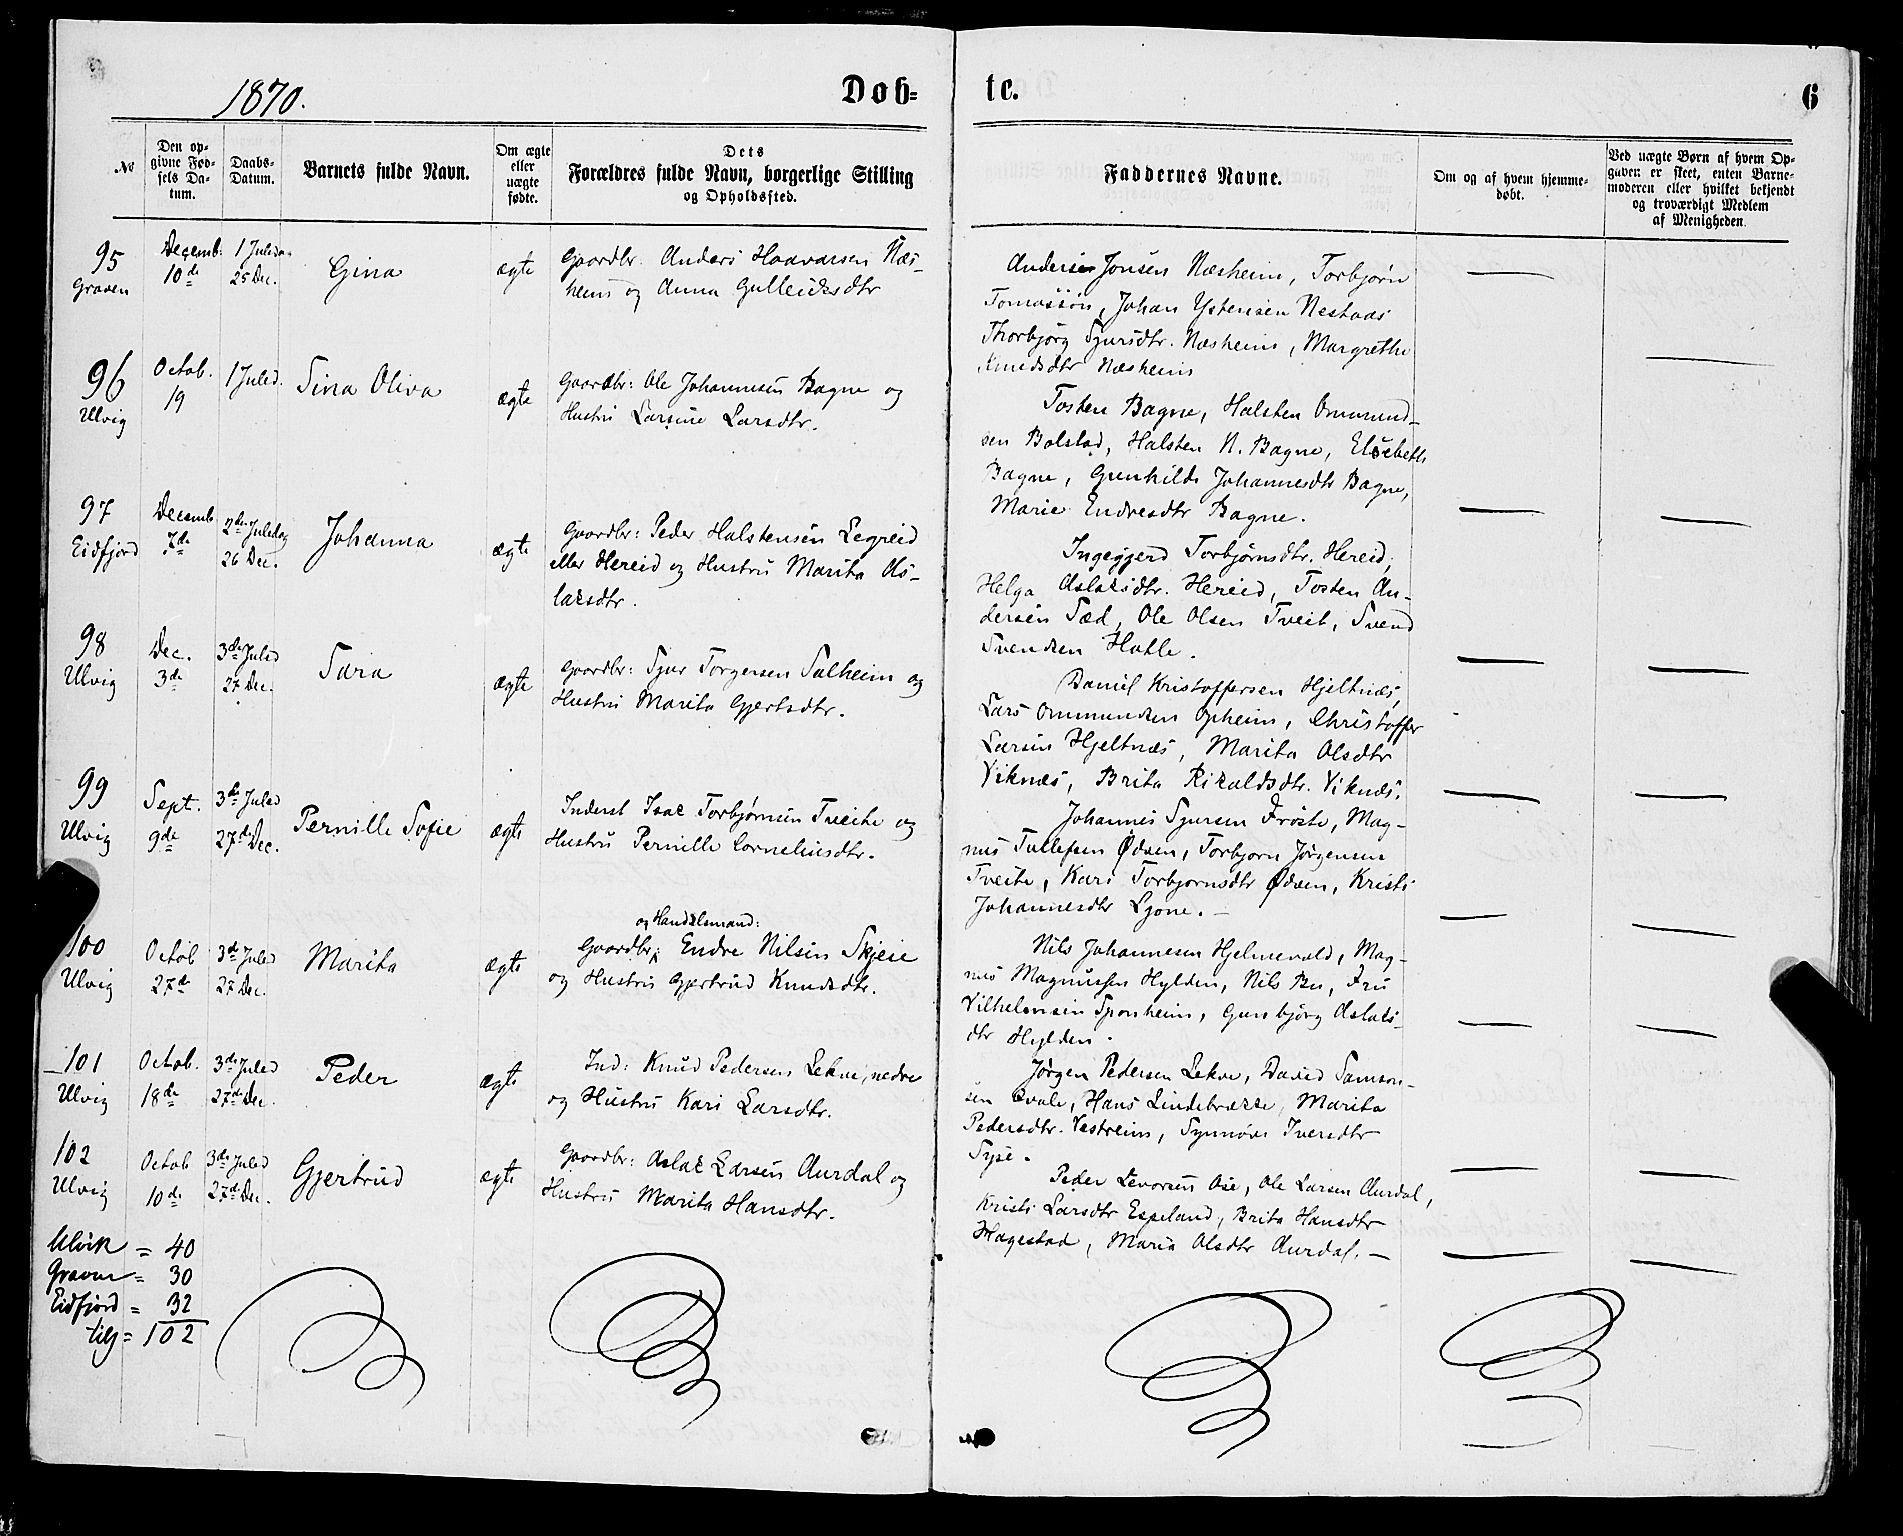 1870.
Døb-
te.
6
No
Den op-
givne Fød-
sels Da-
tum.
Daabs-
Datum.
Barnets fulde Navn.
Om ægte
eller
uægte
fødte.
Dets
Forældres fulde Navn, borgerlige Stilling
og Opholdssted.
Faddernes Navne.
Om og af hvem hjemme-
døbt.
Ved uægte Børn af hvem Op-
gaven er skeet, enten Barne-
moderen eller hvilket bekjendt
og troværdigt Medlem
af Menigheden.
95
Graven
Decemb:
10de
1 Juledag
25 Dec.
Gina
ægte
Gaardbr. Anders Haavarsen Næs-
heim og Anna Gulleiksdtr
Anders Jonsen Næsheim, Torbjørn
Tomassøn, Johan Ystensen Nestaas
Thorbjørg Sjursdtr. Næsheim, Margrethe
Knudsdtr Næsheim
96
Ulvig
Octob.
19
1 Juled.
Sina Oliva
ægte
Gaardbr: Ole Johannesen Bagne og
Hustru Larsine Larsdtr.
Tosten Bagne, Halsten Ommund-
sen Bolstad, Halsten N. Bagne, Elsebeth
Bagne, Gunhilde Johannesdtr Bagne,
Marie Endresdtr Bagne.
97
Eidfjord
Decemb
7de
2den Juledag
26 Dec.
Johanna
ægte
Gaardbr: Peder Halstensen Legreid
eller Hereid og Hustru Marita As-
laksdtr.
Ingegjerd Torbjørnsdtr. Hereid,
Helga Aslaksdtr. Hereid, Tosten An-
dersen Sæd, Ole Olsen Tveit, Svend
Svendsen Hatle.
98
Ulvig
Dec.
3de
3de Juled
27 Dec.
Sara
ægte
Gaardbr: Sjur Torgersen Salheim og
Hustru Marita Gjertsdtr.
Daniel Kristoffersen Hjeltnæs,
Lars Ommundsen Opheim, Christoffer
Larsen Hjeltnæs, Marita Olsdtr
Viknæs, Brita Rikoldsdtr. Viknæs.
99
Ulvig
Sept.
9de
3de Juled
27de Dec.
Pernille Sofie
ægte
Inderst Isak Torbjørnsen Tveite og
Hustru Pernille Corneliusdtr.
Johannes Sjursen Frøste, Mag-
nus Tullefsen Ødven, Torbjorn Jørgensen
Tveite, Kari Torbjornsdtr Ødven, Kristi
Johannesdtr Ljone.
100
Ulvig
Octob
27de
3de Juled
27 Dec.
Marita
ægte
og Handelsmand:
Gaardbr; Endre Nilsen Skjeie
og Hustru Gjertrud Knudsdtr.
Nils Johannesen Hjelmevold, Mag-
nus Magnussen Hylden, Nils Bu, Fru
Vilhelmsen Sponheim, Gunbjørg Aslaks-
dtr Hylden.
101
Ulvig
Octob.
18de
3de Juled
27de Dec.
Peder
ægte
Ind: Knud Pedersen Lekve, nedre
og Hustru Kari Larsdtr.
Jørgen Pedersen Lekve, David Samson-
sen Qvale, Hans Lindebrække, Marita
Pedersdtr. Vestreim, Synnøve Iversdtr
Syse.
102
Ulvig
Octob
10de
3de Juled
27de Dec.
Gjertrud
ægte
Gaardbr: Aslak Larsen Aurdal og
Hustru Marita Hansdtr.
Peder Levorsen Ose, Ole Larsen Aurdal,
Kristi Larsdtr Espeland, Brita Hansdtr
Hagestad, Maria Olsdtr Aurdal.
Ulvik = 40
Graven = 30
Eidfjord = 32
tils = 102